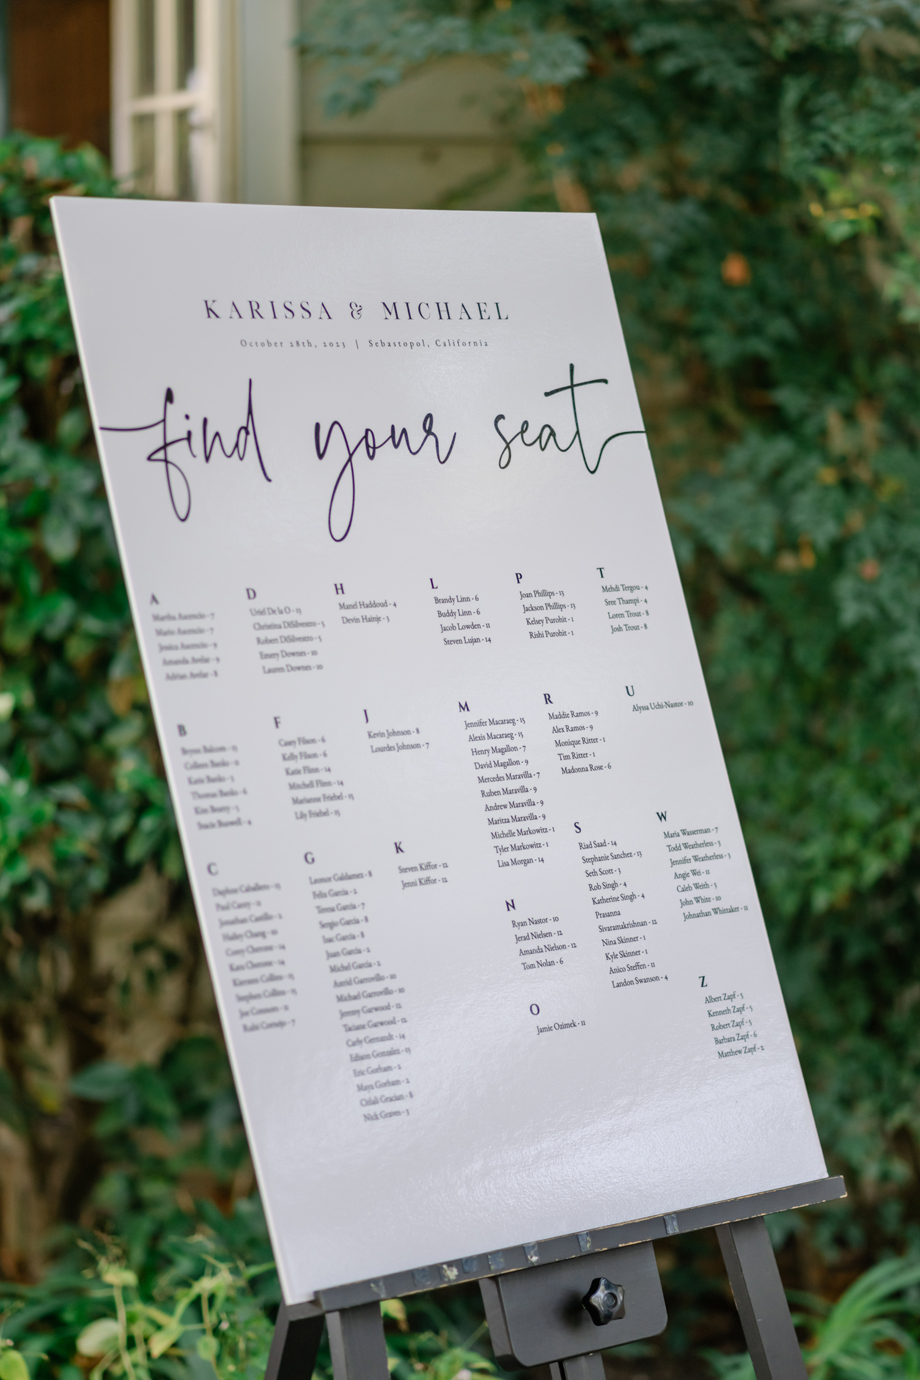 KARISSA & MICHAEL
October 28th, 2023 | Sebastopol, California
find your seat
A
Martha Asencio - 7
Mario Asencio - 7
Jessica Asencio - 9
Amanda Avelar - 9
Adrian Avelar - 8
B
Bryan Balcom - 13
Colleen Banks - 11
Katie Banks - 5
Thomas Banks - 6
Kim Beatty - 5
Stacie Buswell - 4
C
Daphne Caballero - 15
Paul Carey - 11
Jonathan Castillo - 2
Hailey Chang - 10
Corey Chenour - 14
Kara Chenour - 14
Kiersten Collins - 15
Stephen Collins - 15
Joe Connors - 11
Rubi Cornejo - 7
D
Uriel De la O - 13
Christina DiSilvestro - 5
Robert DiSilvestro - 5
Emery Downes - 10
Lauren Downes - 10
F
Casey Filson - 6
Kelly Filson - 6
Katie Flinn - 14
Mitchell Flinn - 14
Marianne Friebel - 15
Lily Friebel - 15
G
Leonor Galdamez - 8
Felix Garcia - 2
Teresa Garcia - 7
Sergio Garcia - 8
Isac Garcia - 8
Juan Garcia - 2
Michel Garcia - 2
Astrid Garnovillo - 10
Michael Garnovillo - 10
Jeremy Garwood - 12
Taciane Garwood - 12
Carly Gernandt - 14
Edison Gonzalez - 13
Eric Gorham - 2
Maya Gorham - 2
Citlali Gracian - 8
Nick Graves - 3
H
Manel Haddoud - 4
Devin Hainje - 3
J
Kevin Johnson - 8
Lourdes Johnson - 7
K
Steven Kiffor - 12
Jenni Kiffor - 12
L
Brandy Linn - 6
Buddy Linn - 6
Jacob Lowden - 11
Steven Lujan - 14
M
Jennifer Macaraeg - 15
Alexis Macaraeg - 15
Henry Magallon - 7
David Magallon - 9
Mercedes Maravilla - 7
Ruben Maravilla - 9
Andrew Maravilla - 9
Maritza Maravilla - 9
Michelle Markowitz - 1
Tyler Markowitz - 1
Lisa Morgan - 14
N
Ryan Nastor - 10
Jerad Nielsen - 12
Amanda Nielson - 12
Tom Nolan - 6
O
Jamie Ozimek - 11
P
Joan Phillips - 13
Jackson Phillips - 13
Kelsey Purohit - 1
Rishi Purohit - 1
R
Maddie Ramos - 9
Alex Ramos - 9
Monique Ritter - 1
Tim Ritter - 1
Madonna Rose - 6
S
Riad Saad - 14
Stephanie Sanchez - 13
Seth Scott - 3
Rob Singh - 4
Katherine Singh - 4
Prasanna
Sivaramakrishnan - 12
Nina Skinner - 1
Kyle Skinner - 1
Anico Steffen - 11
Landon Swanson - 4
T
Mehdi Tergou - 4
Sree Thampi - 4
Loren Trout - 8
Josh Trout - 8
U
Alyssa Uchi-Nastor - 10
W
Maria Wasserman - 7
Todd Weatherless - 3
Jennifer Weatherless - 3
Angie Wei - 11
Caleb Weith - 3
John Whitt - 10
Johnathan Whittaker - 11
Z
Albert Zapf - 5
Kenneth Zapf - 5
Robert Zapf - 5
Barbara Zapf - 6
Matthew Zapf - 2